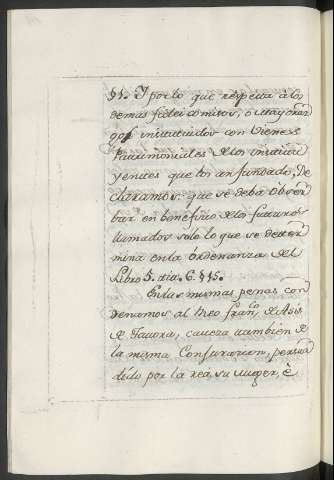 §1. Y por lo que respecta à los
demas fidei comisos, ò Mayoraz
gos instituidos con Vienes
Patrimoniales de los institu
yentes que los an fundado, De
claramos, que se deba obser
bar en beneficio de los futuros
llamados solo lo que se deter
mina en la òrdenanza del
Libro 5. tit. 6. §15.
En las mismas penas con
denamos al Reo Fran.co de Asis
de Tavora, caveza tambien de
la misma Conjuracion, persua
dido por la rea, su muger, è